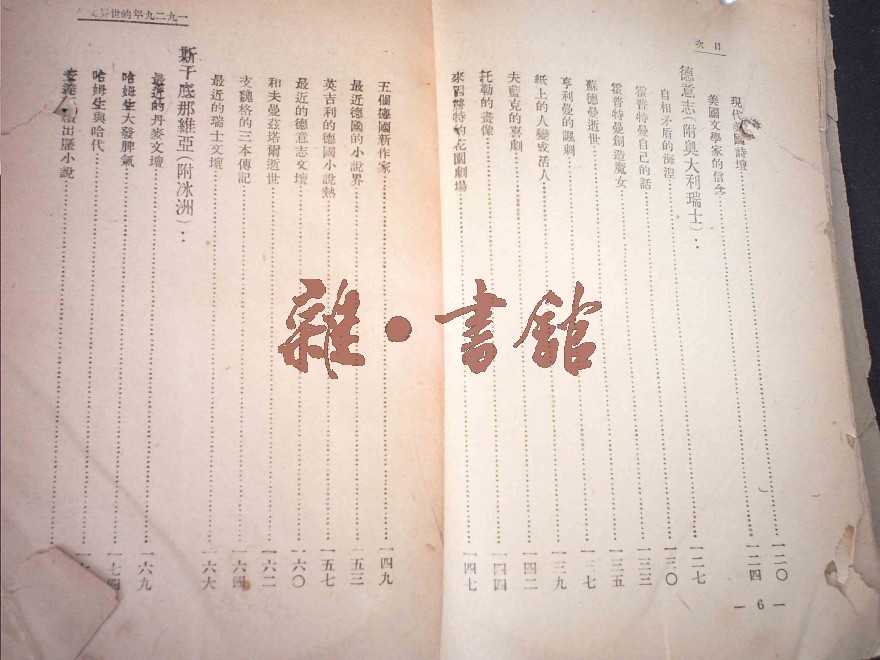 目次
現代美國詩壇……一二〇
美國文學家的信念……一二四
德意志（附奧大利瑞士）：
自相矛盾的海涅……一三〇
霍普特曼自己的話……一三三
霍普特曼創造魔女……一三五
蘇德曼逝世……一三七
亨利曼的諷刺……一三九
紙上的人變成活人……一四二
夫薩克的喜劇……一四四
托勒的畫像……
來因赫特的花園劇場……一四七
— 6 —
一九二九年的世界文
五個德國新作家……一四九
最近德國的小說界……一五三
英吉利的德國小說熱……一五七
最近的德意志文壇……一六〇
和夫曼亞塔爾逝世……一六二
支魏格的三本傳記……一六四
最近的瑞士文壇……一六六
斯干底那維亞（附冰洲）：
最近的丹麥文壇……一六九
哈姆生大發脾氣……一七四
哈姆生與哈代……
出歷小說……
雜·書館